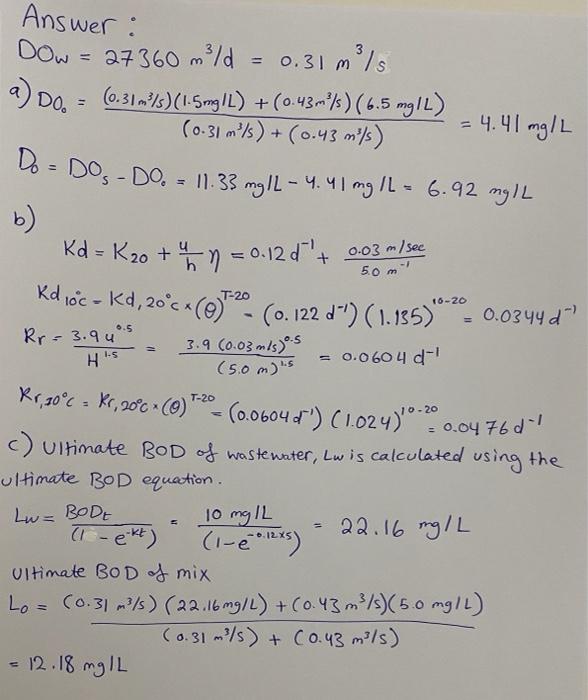 Answer :
DOw = 27360 m³/d = 0.31 m³/s
a) DO₀ = (0.31m³/s)(1.5mg/L) + (0.43m³/s)(6.5 mg/L) / (0.31 m³/s) + (0.43 m³/s) = 4.41 mg/L
D₀ = DOs - DO₀ = 11.33 mg/L - 4.41 mg/L = 6.92 mg/L
b)
Kd = K20 + u/h η = 0.12 d⁻¹ + 0.03 m/sec / 5.0 m⁻¹
Kd 10°c = Kd, 20°c × (θ)^T-20 = (0.122 d⁻¹) (1.135)^10-20 = 0.0344 d⁻¹
Rr = 3.9 u^0.5 / H^1.5 = 3.9 (0.03 m/s)^0.5 / (5.0 m)^1.5 = 0.0604 d⁻¹
Kr,10°c = Kr,20°c × (θ)^T-20 = (0.0604 d⁻¹) (1.024)^10-20 = 0.0476 d⁻¹
c) Ultimate BOD of wastewater, Lw is calculated using the
ultimate BOD equation.
Lw = BODt / (1 - e^-kt) = 10 mg/L / (1-e^-0.12×5) = 22.16 mg/L
Ultimate BOD of mix
L₀ = (0.31 m³/s) (22.16mg/L) + (0.43 m³/s)(5.0 mg/L) / (0.31 m³/s) + (0.43 m³/s)
= 12.18 mg/L